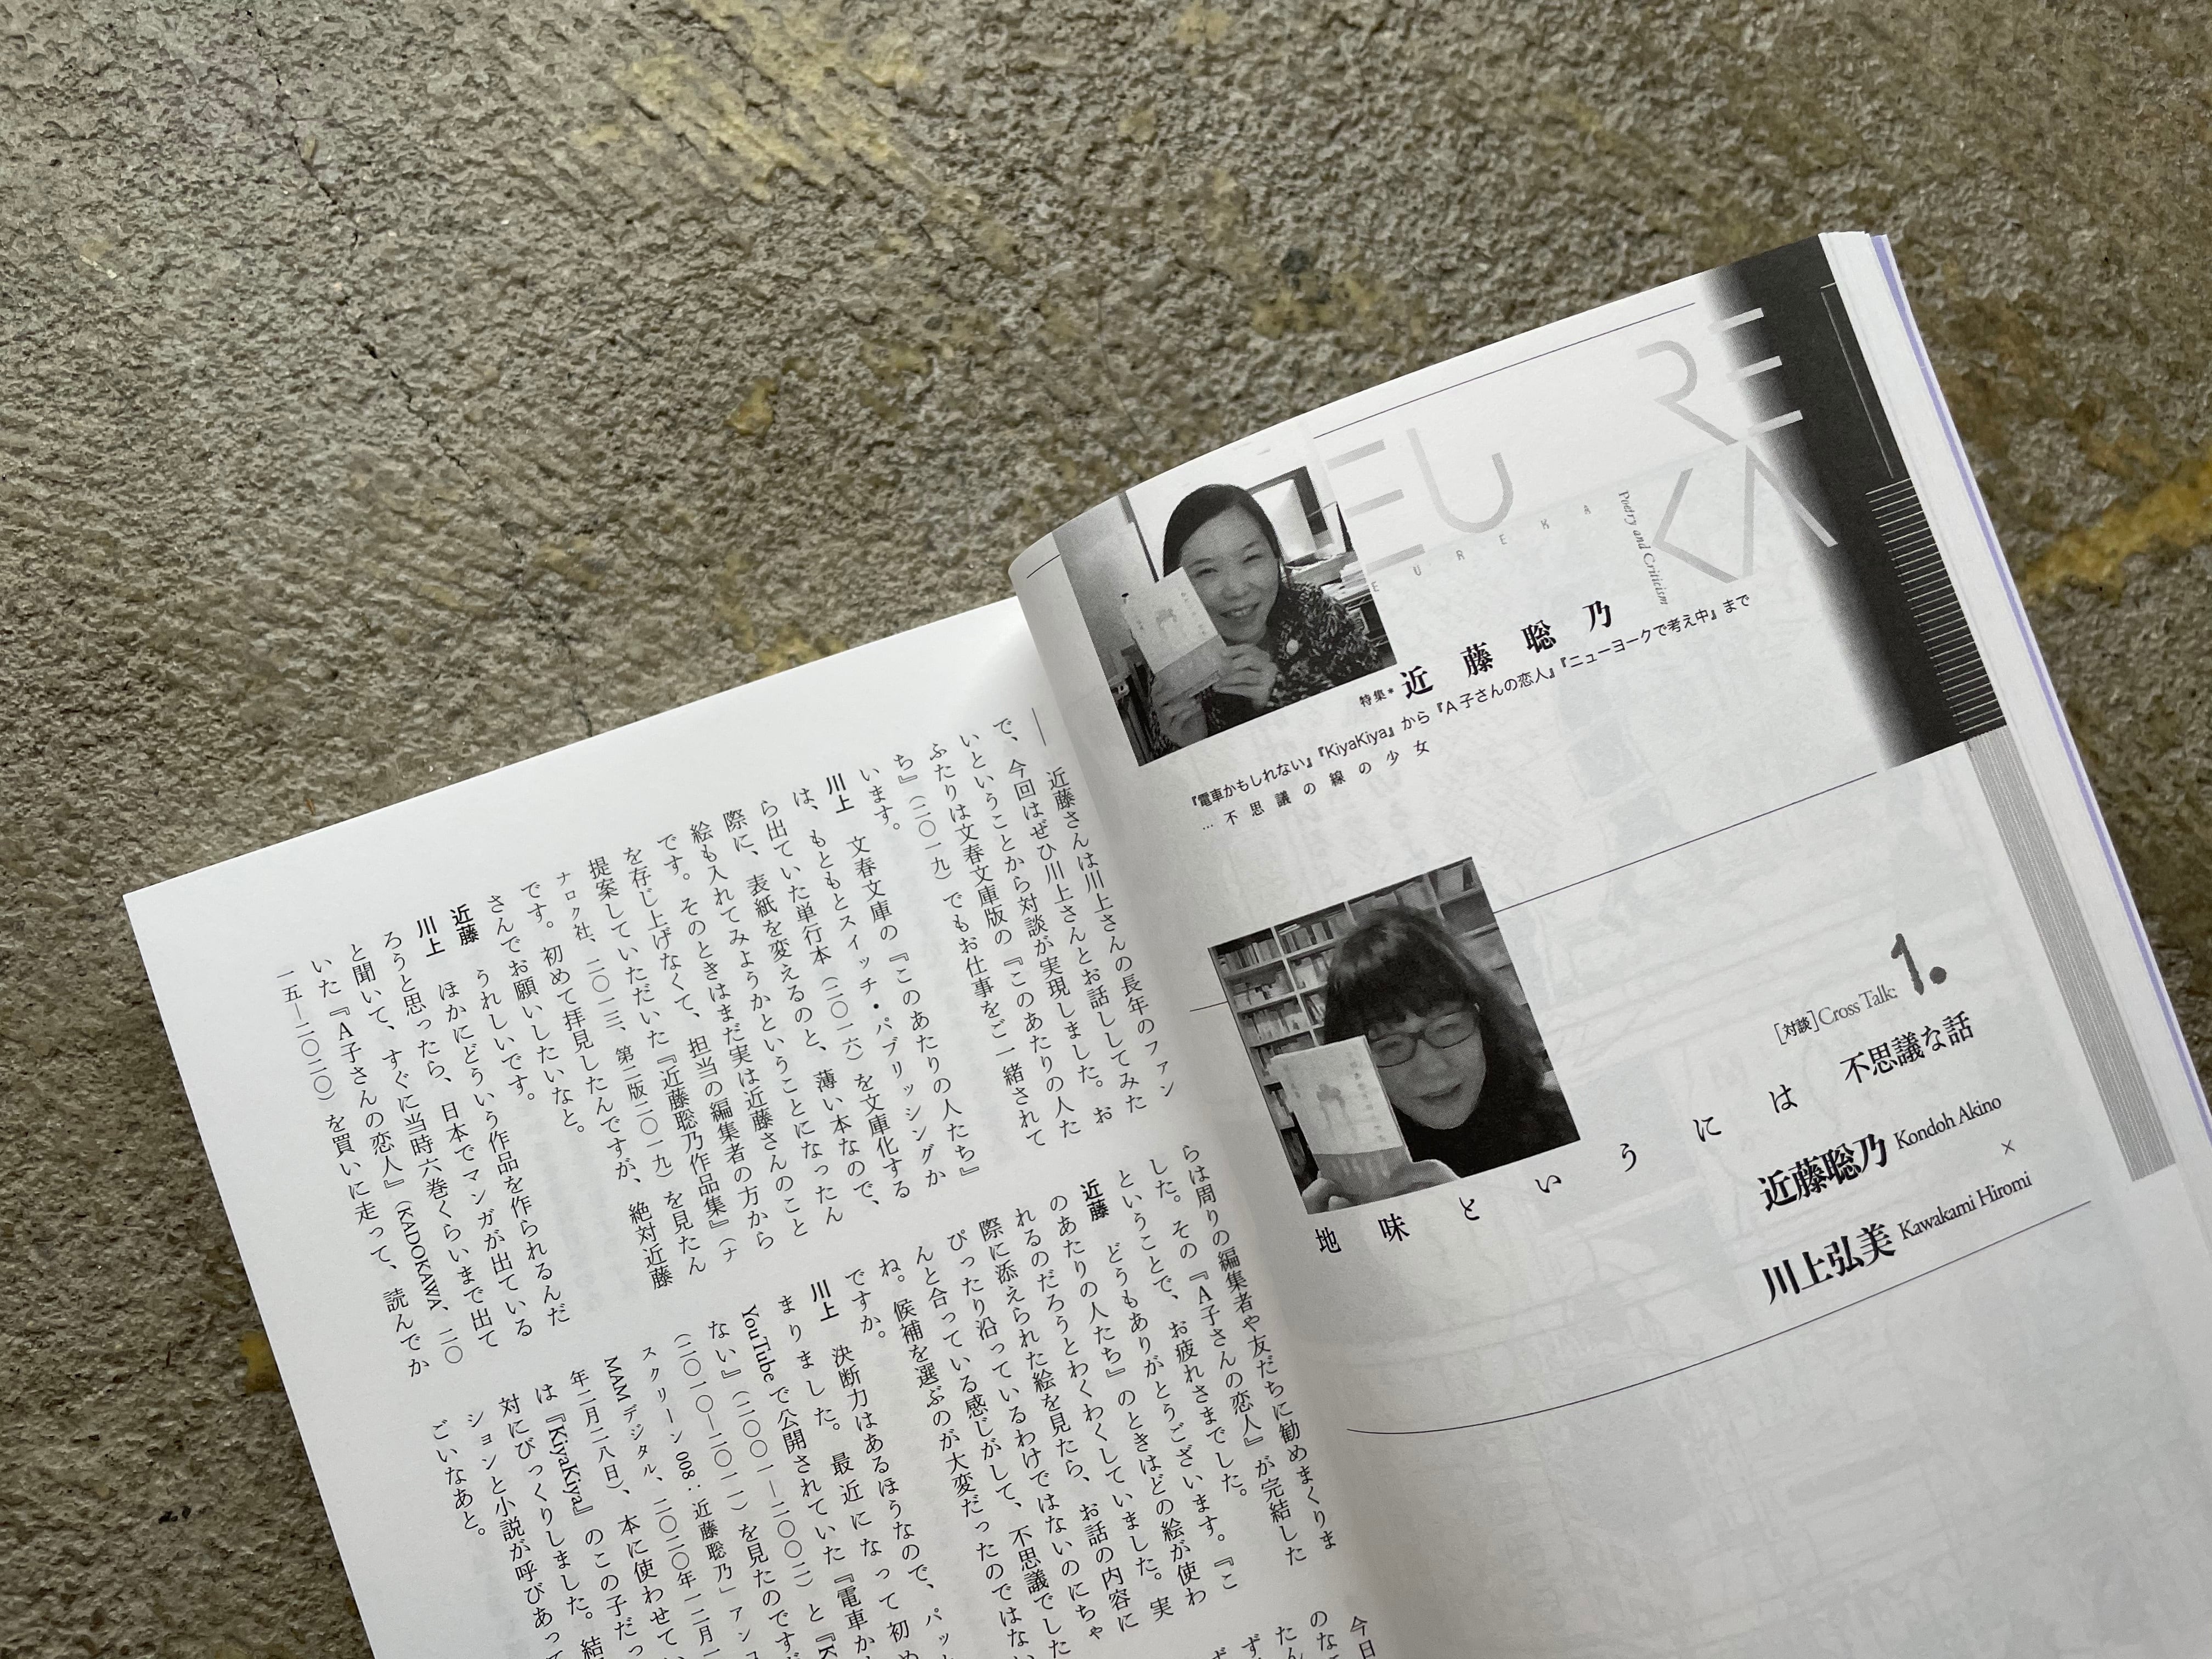 EU RE KA
EUREKA
Poetry and Criticism
特集*近藤聡乃
『電車かもしれない』『KiyaKiya』から『A子さんの恋人』『ニューヨークで考え中』まで
…不思議の線の少女
1.
[対談]Cross Talk:
地味というには 不思議な話
近藤聡乃 Kondoh Akino
×
川上弘美 Kawakami Hiromi
――近藤さんは川上さんの長年のファン
で、今回はぜひ川上さんとお話ししてみた
いということから対談が実現しました。お
ふたりは文春文庫版の『このあたりの人た
ち』(二〇一九)でもお仕事をご一緒されて
います。
川上 文春文庫の『このあたりの人たち』
は、もともとスイッチ・パブリッシングか
ら出ていた単行本(二〇一六)を文庫化する
際に、表紙を変えるのと、薄い本なので、
絵も入れてみようかということになったん
です。そのときはまだ実は近藤さんのこと
を存じ上げなくて、担当の編集者の方から
提案していただいた『近藤聡乃作品集』(ナ
ナロク社、二〇一三、第二版二〇一九)を見たん
です。初めて拝見したんですが、絶対近藤
さんでお願いしたいなと。
近藤 うれしいです。
川上 ほかにどういう作品を作られるんだ
ろうと思ったら、日本でマンガが出ている
と聞いて、すぐに当時六巻くらいまで出て
いた『A子さんの恋人』(KADOKAWA、二〇
一五―二〇二〇)を買いに走って、読んでか
らは周りの編集者や友だちに勧めまくりま
した。その『A子さんの恋人』が完結した
ということで、お疲れさまでした。
近藤 どうもありがとうございます。『こ
のあたりの人たち』のときはどの絵が使わ
れるのだろうとわくわくしていました。実
際に添えられた絵を見たら、お話の内容に
ぴったり沿っているわけではないのにちゃ
んと合っている感じがして、不思議でした
ね。候補を選ぶのが大変だったのではない
ですか。
川上 決断力はあるほうなので、パッ
まりました。最近になって初め
YouTubeで公開されていた『電車か
ない』(二〇〇一―二〇〇二)と『K
(二〇一〇―二〇一一)を見たのです
スクリーン008:近藤聡乃」アン
MAMデジタル、二〇二〇年一二月一
年二月二八日)、本に使わせてい
は『KiyaKiya』のこの子だっ
対にびっくりしました。結
ションと小説が呼びあって
ごいなあと。
今日
のな
たん